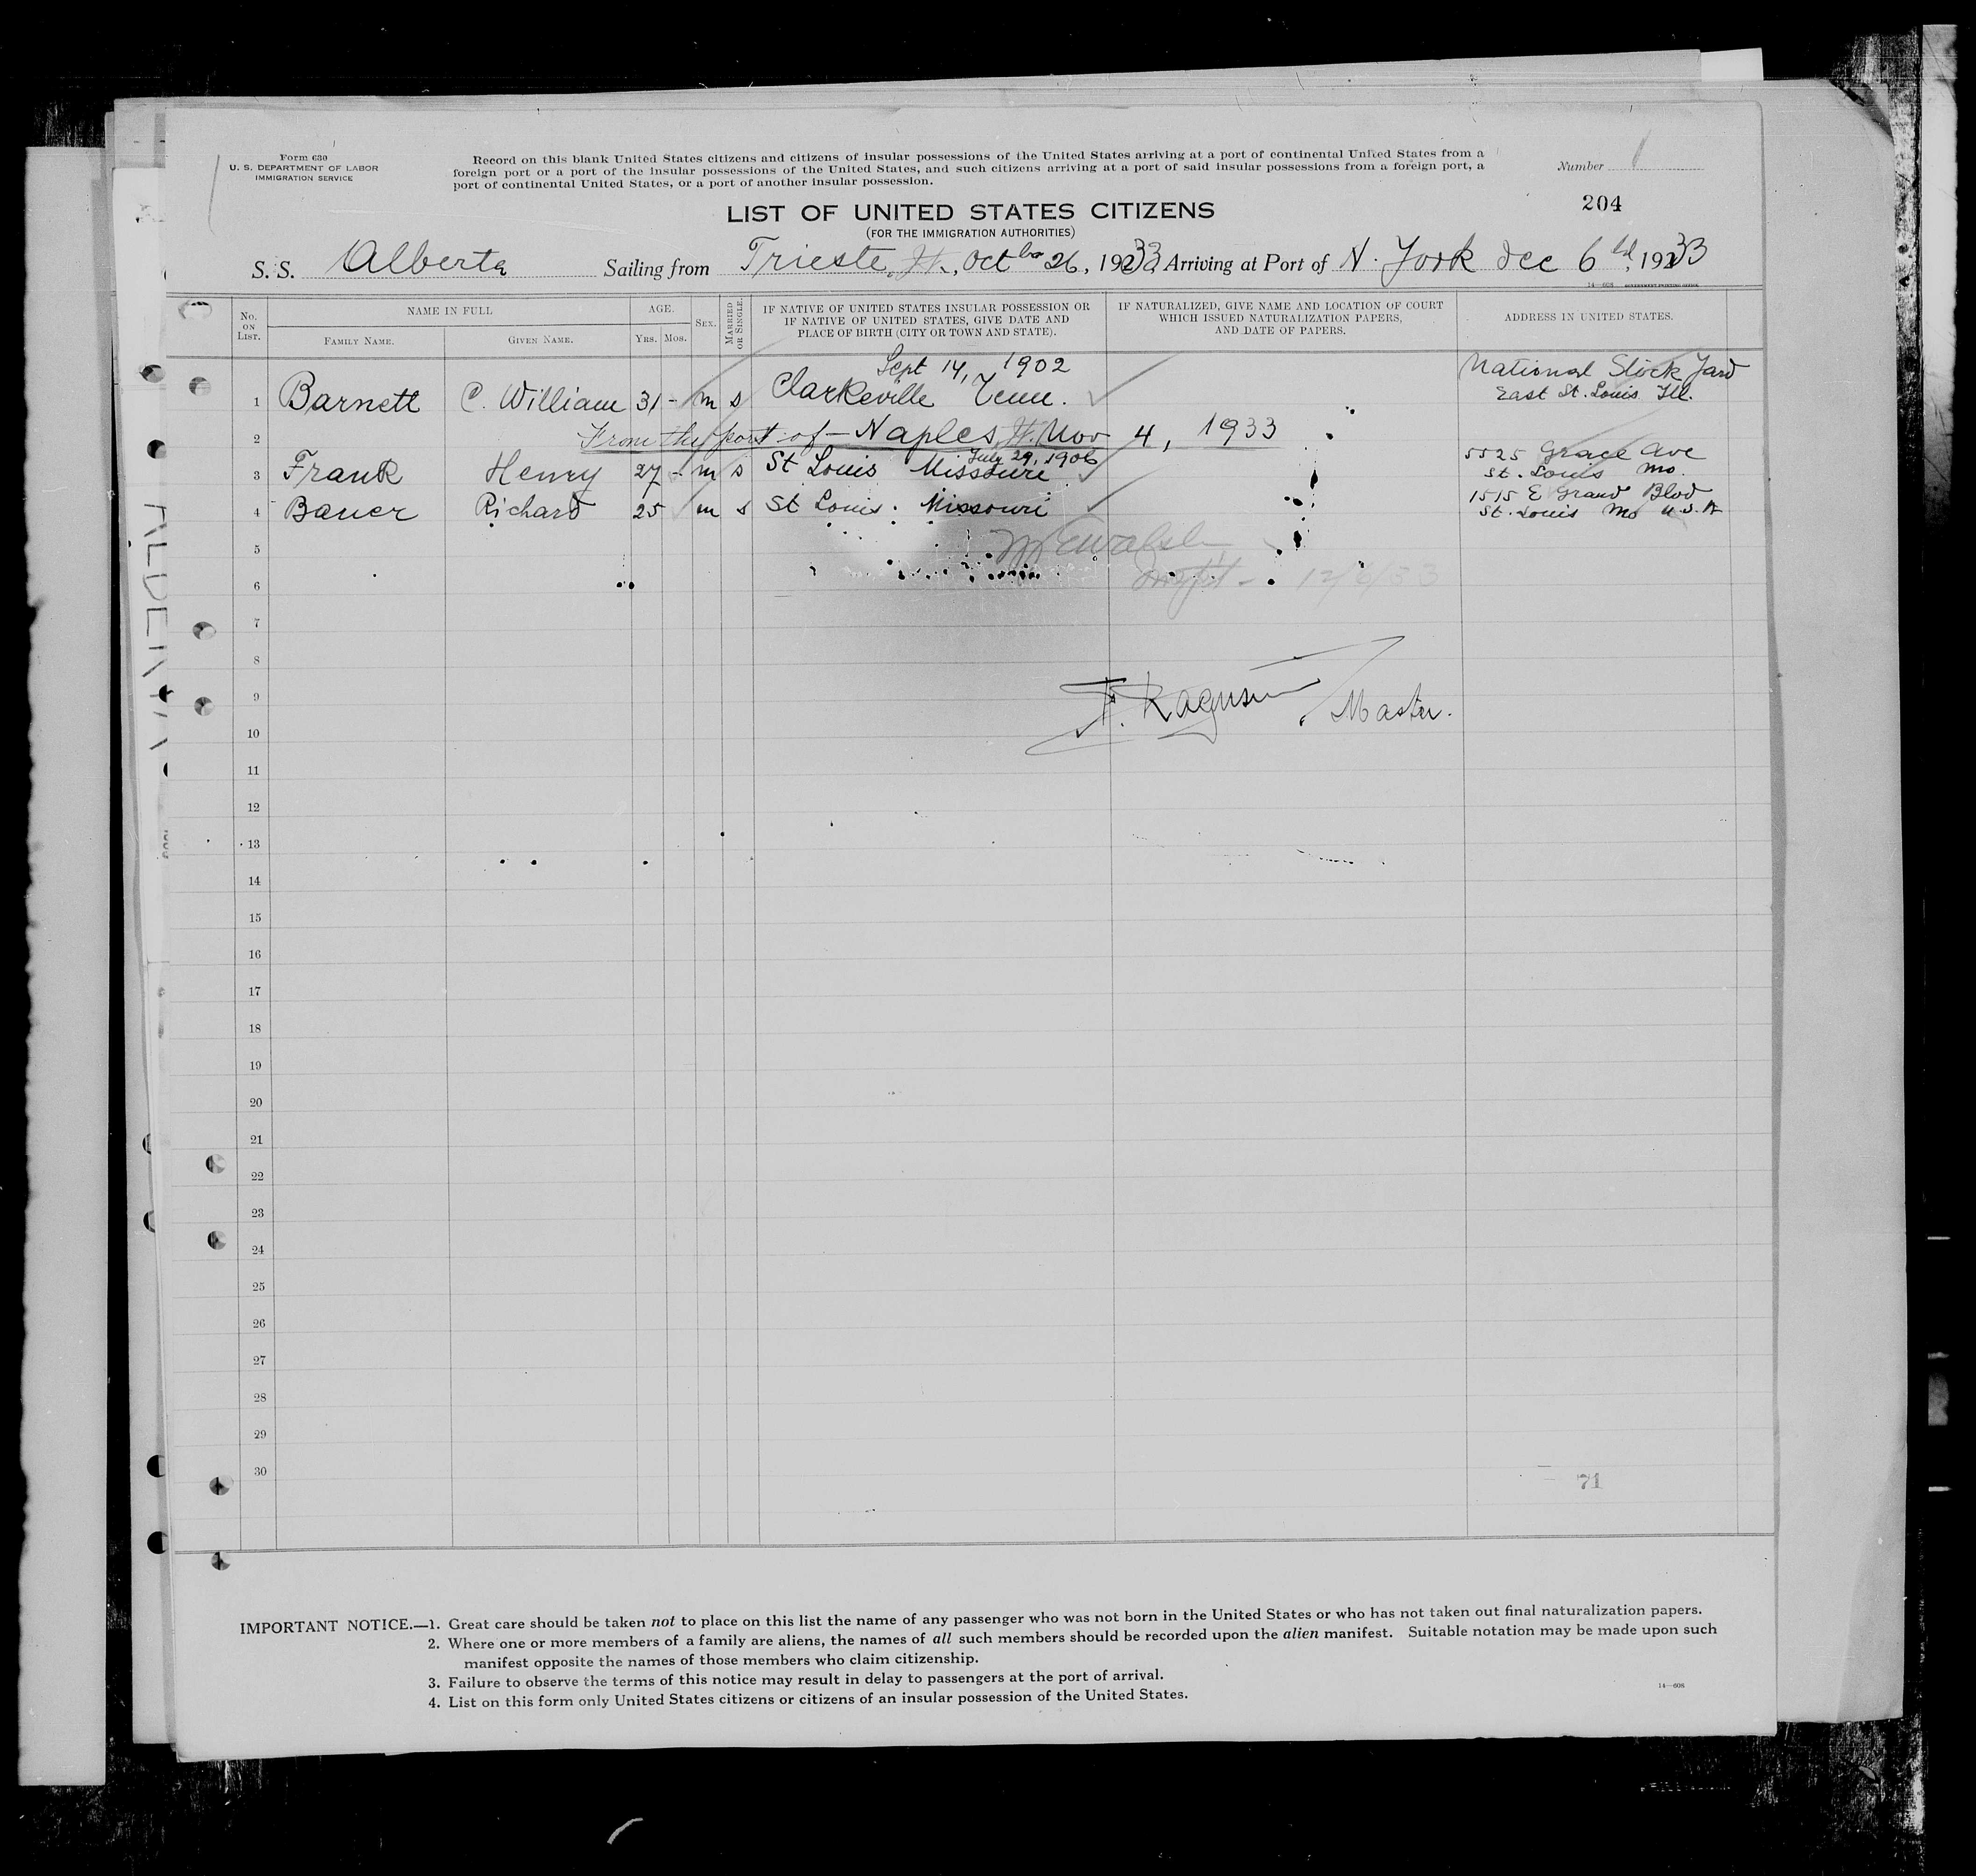 Form 630
U. S. DEPARTMENT OF LABOR
IMMIGRATION SERVICE
Record on this blank United States citizens and citizens of insular possessions of the United States arriving at a port of continental United States from a
foreign port or a port of the insular possessions of the United States, and such citizens arriving at a port of said insular possessions from a foreign port, a
port of continental United States, or a port of another insular possession.
Number 1
204
LIST OF UNITED STATES CITIZENS
(FOR THE IMMIGRATION AUTHORITIES)
S. S. Alberta Sailing from Trieste, It., Oct 26, 1933 Arriving at Port of N. York Dec 6, 1933
14—608 GOVERNMENT PRINTING OFFICE
No. ON LIST.
NAME IN FULL
FAMILY NAME.
GIVEN NAME.
AGE.
YRS. MOS.
SEX.
MARRIED OR SINGLE.
IF NATIVE OF UNITED STATES INSULAR POSSESSION OR
IF NATIVE OF UNITED STATES, GIVE DATE AND
PLACE OF BIRTH (CITY OR TOWN AND STATE).
IF NATURALIZED, GIVE NAME AND LOCATION OF COURT
WHICH ISSUED NATURALIZATION PAPERS,
AND DATE OF PAPERS.
ADDRESS IN UNITED STATES.
Sept 14, 1902 National Stock Yard
1 Barnett C. William 31 - m s Clarkeville Tenn. East St. Louis Ill.
2 From the port of - Naples, It. Nov 4, 1933
July 29, 1906 5525 Grace Ave
3 Frank Henry 27 - m s St Louis Missouri St. Louis Mo.
1515 E Grand Blvd
4 Bauer Richard 25 m s St Louis. Missouri St. Louis Mo U.S.A
5
6 12/6/33
7
8
9
F. Ragusin, Master.
10
11
12
13
14
15
16
17
18
19
20
21
22
23
24
25
26
27
28
29
30
71
IMPORTANT NOTICE.—1. Great care should be taken not to place on this list the name of any passenger who was not born in the United States or who has not taken out final naturalization papers.
2. Where one or more members of a family are aliens, the names of all such members should be recorded upon the alien manifest. Suitable notation may be made upon such
manifest opposite the names of those members who claim citizenship.
3. Failure to observe the terms of this notice may result in delay to passengers at the port of arrival.
4. List on this form only United States citizens or citizens of an insular possession of the United States.
14—608